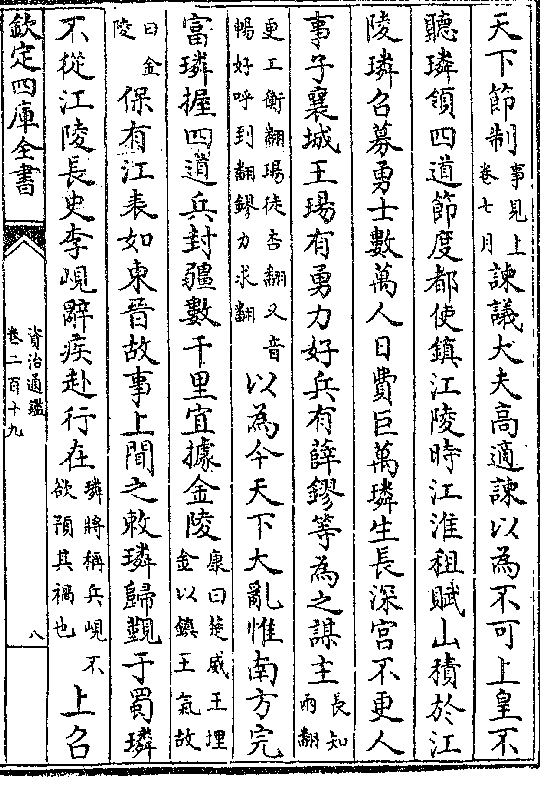 天下節制事見上卷七月諫議大夫高適諫以為不可上皇不
聽璘領四道節度都使鎮江陵時江淮租賦山積於江
陵璘召募勇士數萬人日費巨萬璘生長深宮不更人
事子襄城王瑒有勇力好兵有薛鏐等為之謀主長知兩翻
更工衡翻瑒徒杏翻又音暢好呼到翻鏐力求翻以為今天下大亂惟南方完
富璘握四道兵封疆數千里宜據金陵康曰楚威王埋金以鎮王氣故
曰金陵保有江表如東晉故事上聞之敕璘歸覲于蜀璘
不從江陵長史李峴辭疾赴行在璘將稱兵峴不欲預其禍也上召
欽定四庫全書
資治通鑑
卷二百十九
八